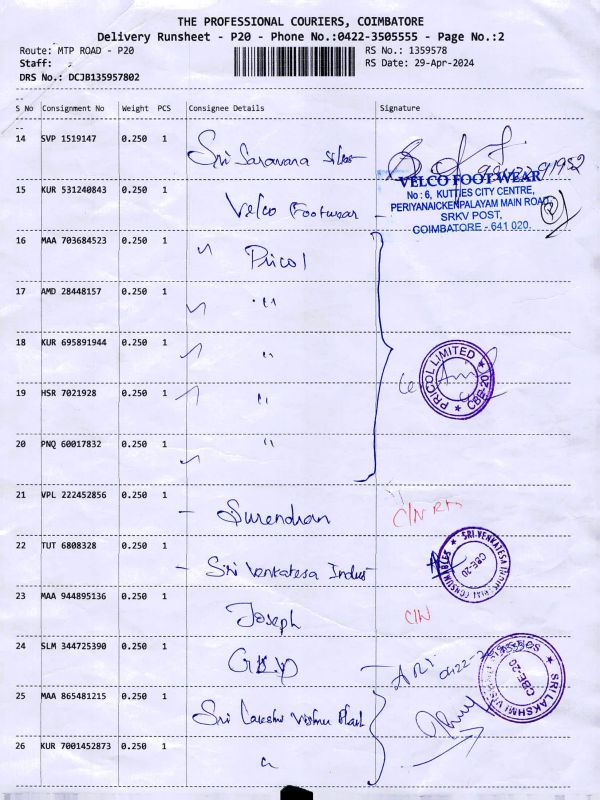 THE PROFESSIONAL COURIERS, COIMBATORE
Delivery Runsheet - P20 - Phone No.:0422-3505555 - Page No.:2
Route: MTP ROAD - P20 RS No.: 1359578
Staff: RS Date: 29-Apr-2024
DRS No.: DCJB135957802
S No Consignment No Weight PCS Consignee Details Signature
14 SVP 1519147 0.250 1 Sri Saravana
15 KUR 531240843 0.250 1 Velco Footwear
VELCO FOOTWEAR
No : 6, KUTTIES CITY CENTRE,
PERIYANAICKENPALAYAM MAIN ROAD,
SRKV POST,
COIMBATORE - 641 020.
16 MAA 703684523 0.250 1 Pricol
17 AMD 28448157 0.250 1 "
18 KUR 695891944 0.250 1 "
19 HSR 7021928 0.250 1 "
PRICOL LIMITED ★ CBE-20 ★
20 PNQ 60017832 0.250 1 "
21 VPL 222452856 0.250 1 - Surendran C/N
22 TUT 6808328 0.250 1 - Sri Venkatesa Indus
★ SRI VENKATESA INDUSTRIAL CONSUMABLES
CBE-20
23 MAA 944895136 0.250 1 Joseph C/N
24 SLM 344725390 0.250 1
25 MAA 865481215 0.250 1 Sri Lakshmi Vishnu
★ SRI LAKSHMI
CBE-20
26 KUR 7001452873 0.250 1 "